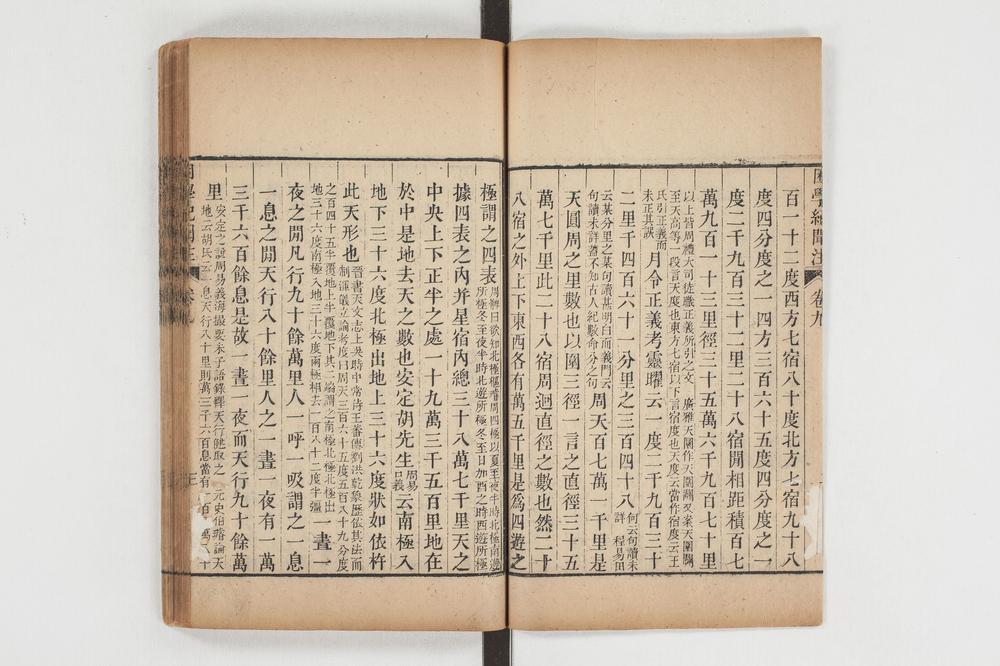 困學紀聞注 卷九
百一十二度西方七宿八十度北方七宿九十八
度四分度之一四方三百六十五度四分度之一
度二千九百三十二里二十八宿閒相距積百七
萬九百一十三里徑三十五萬六千九百七十里
以上皆周禮大司徒疏正義所引之文 廣雅天圍作天圍
至天高等一段言天度也東方七宿以下言宿度也天度云當作宿度云王
氏引正義而
未正其誤
月令正義考靈曜云一度二千九百三十
二里千四百六十一分里之三百四十八
何云句讀未
詳 程易田
云某分里之某句讀其明白而義門云
句讀未詳蓋不知古人紀數命分之句
周天百七萬一千里是
天圓周之里數也以圍三徑一言之直徑三十五
萬七千里此二十八宿周迴直徑之數也然二十
八宿之外上下東西各有萬五千里是爲四遊之
極謂之四表
周髀曰欲知北極樞璿周四極以夏至夜半時北極南遊
所極冬至夜半時北遊所極冬至日加酉之時西遊所極
據四表之內并星宿內總三十八萬七千里天之
中央上下正半之處一十九萬三千五百里地在
於中是地去天之數也安定胡先生
周易
口義
云南極入
地下三十六度北極出地上三十六度狀如依杵
此天形也
晉書天文志上吳時中常侍王蕃傳劉洪乾象歷依其法而
制渾儀立論考度曰周天三百六十五度五百八十九分度
之百四十五半覆地上半覆地下其二端謂之南極北極北極出
地三十六度南極入地三十六度兩極相去一百八十二度半彊
一晝一
夜之閒凡行九十餘萬里人一呼一吸謂之一息
一息之閒天行八十餘里人之一晝一夜有一萬
三千六百餘息是故一晝一夜而天行九十餘萬
里
安定之說周易義海撮要朱子語錄釋天行健取之 元史伯璿論天
地二云胡氏云一息天行八十里則萬三千六百息當有
困學紀聞注 卷九